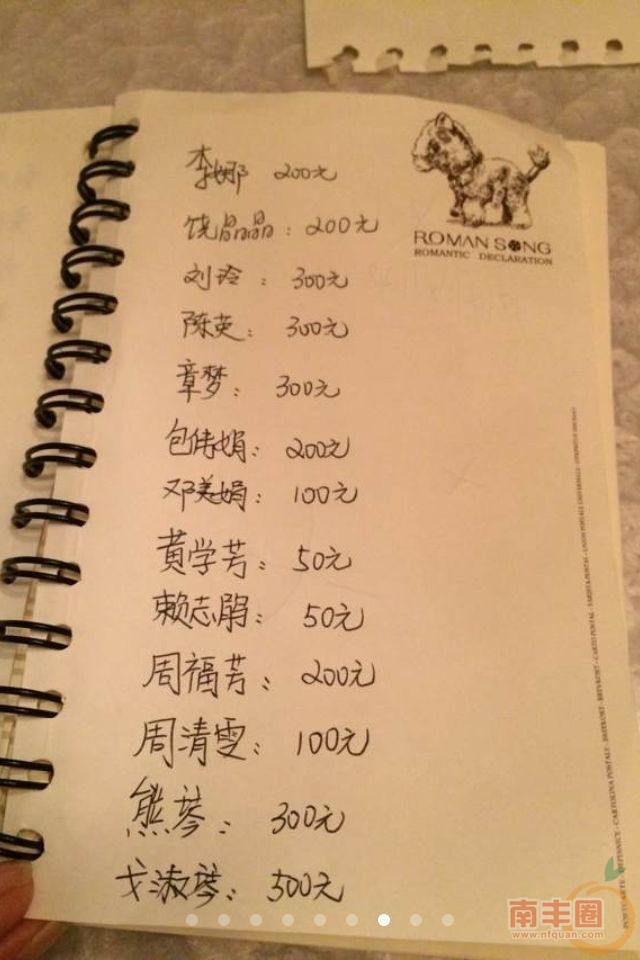 李娜 200元
饶晶晶：200元
刘玲：300元
陈英：300元
章梦：300元
包伟娟：200元
邓美娟：100元
黄学芳：50元
赖志鹃：50元
周福芳：200元
周清雯：100元
熊琴：300元
戈淑琴：500元
ROMAN SONG
ROMANTIC DECLARATION
南丰圈
www.nfquan.com